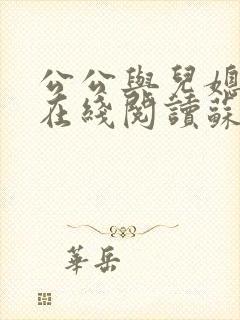 公公與兒媳
在綫閱讀蘇
華岳